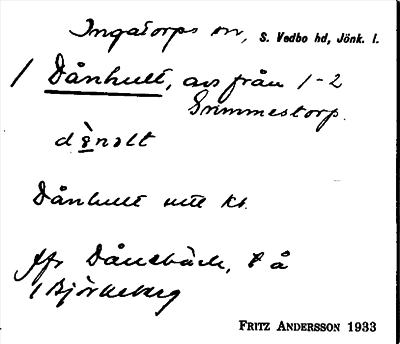 Ingatorps sn, S. Vedbo hd, Jönk. l.
1 Dånhult, avs från 1-2
Grimmestorp.
dånalt
Dånhult utt kt.
Jfr Dånebäck, t å
1 Björkeberg
FRITZ ANDERSSON 1933